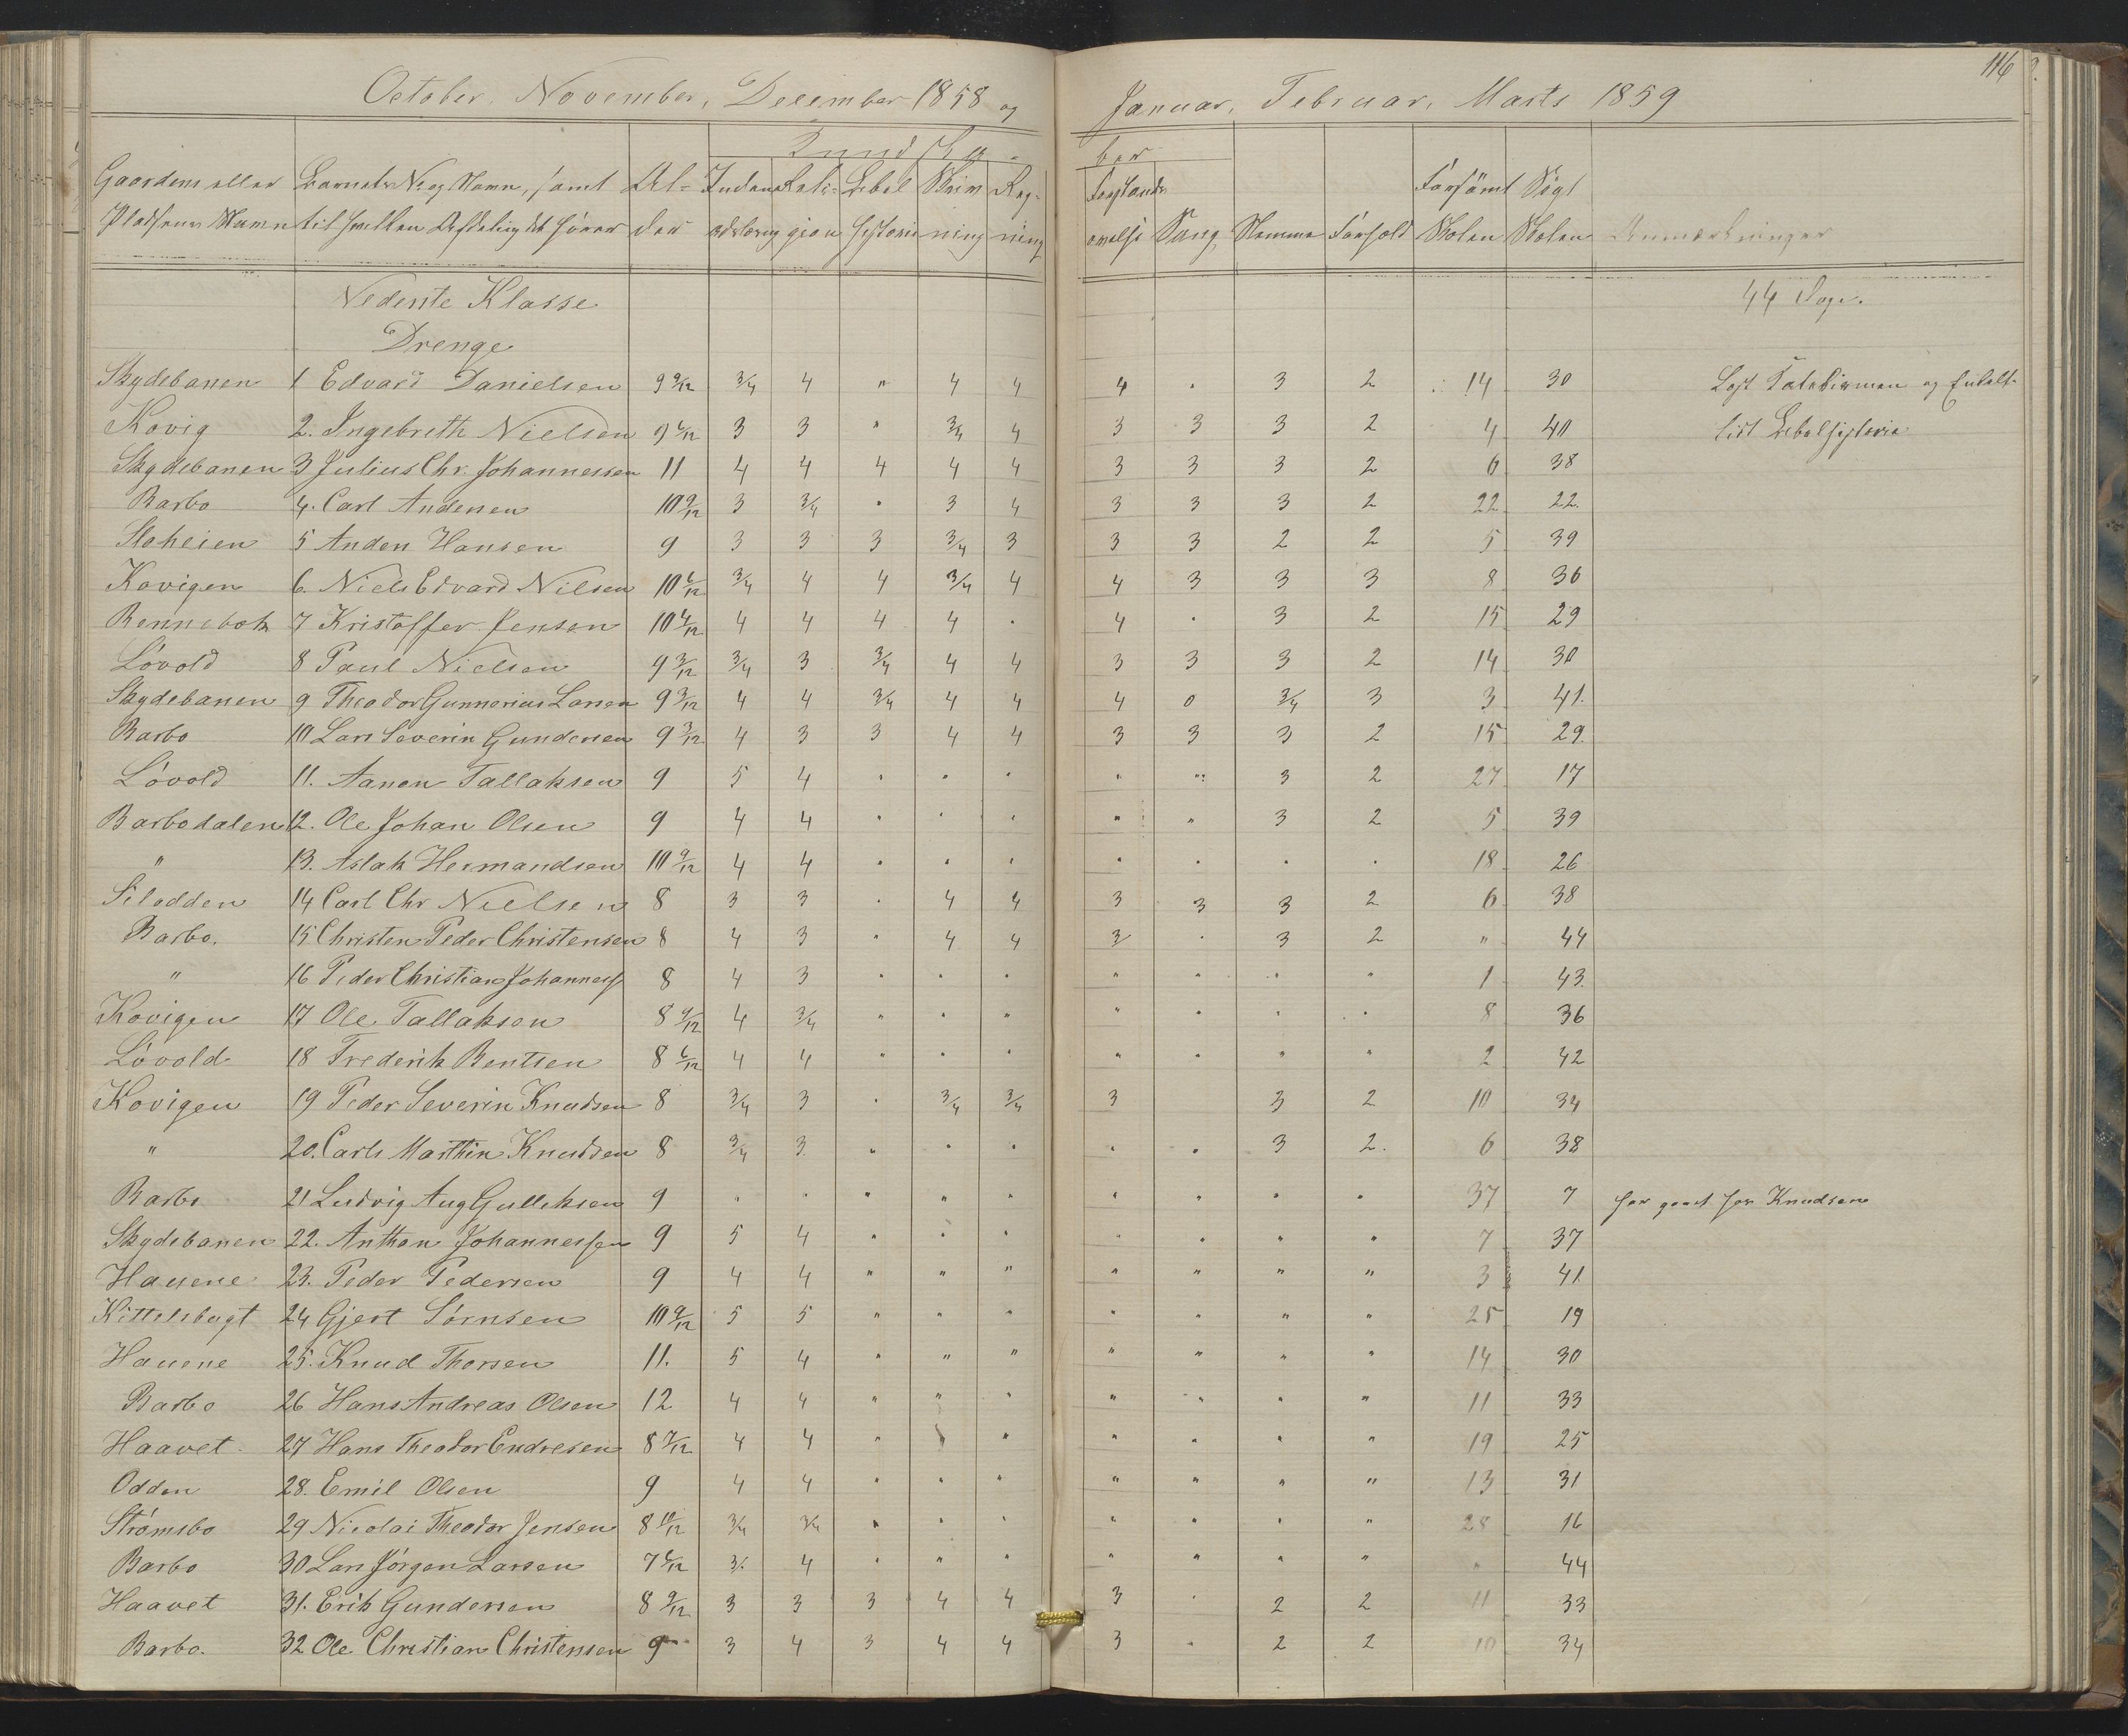 116
October, November, December 1858 og Januar, Februar, Marts 1859
Kundska- ber
Gaardens eller Barnets No og Navn, samt Al- Indenads Reli- Bibel Skriv Reg- Forstands Forsömt Sögt
Pladsens Navn til hvilken Afdeling det hörer der læsning gion historie ning ning ovelse Sang Nemme Forhold Skolen Skolen Anmærkninger
Nederste Klasse 44 Dage.
Drenge
Skydebanen 1 Edvard Danielsen 9 9/12 3/4 4 " 4 4 4 . 3 2 14 30 Læst
Kovig 2. Ingebreth Nielsen 9 6/12 3 3 " 3/4 4 3 3 3 2 4 40 Bibelhistorie
Skydebanen 3 Julius Chr. Johannessen 11 4 4 4 4 4 3 3 3 2 6 38
Barbo 4. Carl Andersen 10 9/12 3 3/4 . 3 4 3 3 3 2 22 22
Sloheien 5 Anders Hansen 9 3 3 3 3/4 3 3 3 2 2 5 39
Kovigen 6. Niels Edvard Nilsen 10 6/12 3/4 4 4 3/4 4 4 3 3 3 8 36
Rennebek 7 Kristoffer Jensen 10 4/12 4 4 4 4 . 4 . 3 2 15 29
Lövold 8 Paul Nielsen 9 3/12 3/4 3 3/4 4 4 3 3 3 2 14 30
Skydebanen 9 Theodor Gunnerius Larsen 9 3/12 4 4 3/4 4 4 4 0 3/4 3 3 41.
Barbo 10 Lars Severin Gundersen 9 3/12 4 3 3 4 4 3 3 3 2 15 29.
Lövold 11. Aanon Tallaksen 9 5 4 . . . " " 3 2 27 17
Barbodalen 12. Ole Johan Olsen 9 4 4 . . . " " 3 2 5 39
" 13. Aslak Hermandsen 10 9/12 4 4 . . . . . . . 18 26
Silodden 14 Carl Chr Nielsen 8 3 3 . 4 4 3 3 3 2 6 38
Barbo. 15 Christen Peder Christensen 8 4 3 " 4 4 3 . 3 2 " 44
" 16 Peder Christian Johanness 8 4 3 . . . " " . " 1 43.
Kovigen 17 Ole Tallaksen 8 9/12 4 3/4 " . " " . . . 8 36
Lövold 18 Frederik Bentsen 8 6/12 4 4 " " . " " " " 2 42
Kovigen 19 Peder Severin Knudsen 8 3/4 3 . 3/4 3/4 3 3 2 10 34
" 20. Carls Marthin Knudsen 8 3/4 3 " . . . . 3 2. 6 38
Barbo 21 Ludvig Aug Gulleksen 9 " . " " . " " " " 37 7 har gaaet hos Knudsen
Skydebanen 22. Anthon Johannessen 9 5 4 " . . . . " " 7 37
Hauene 23. Peder Pedersen 9 4 4 " " " " " " " 3 41
Kittelsbugt 24 Gjert Sörnsen 10 9/12 5 5 " " " " " " " 25 19
Hauene 25. Knud Thorsen 11. 5 4 " " " " " " " 14 30
Barbo 26 Hans Andreas Olsen 12 4 4 " " . " . . " 11 33
Haavet 27 Hans Theodor Endresen 8 7/12 4 4 " " " " " " " 19 25
Odden 28. Emil Olsen 9 4 4 . . " " " " " 13 31
Strømsbo 29 Nicolai Theodor Jensen 8 10/12 3/4 3/4 " . . " " " " 28 16
Barbo 30 Lars Jörgen Larsen 7 6/12 3. 4 . " " " " " " " 44
Haavet 31. Erik Gundersen 8 9/12 3 3 3 4 4 3 . 2 2 11 33
Barbo. 32 Ole Christian Christensen 9 3 4 3 4 4 3 . 2 2 10 34